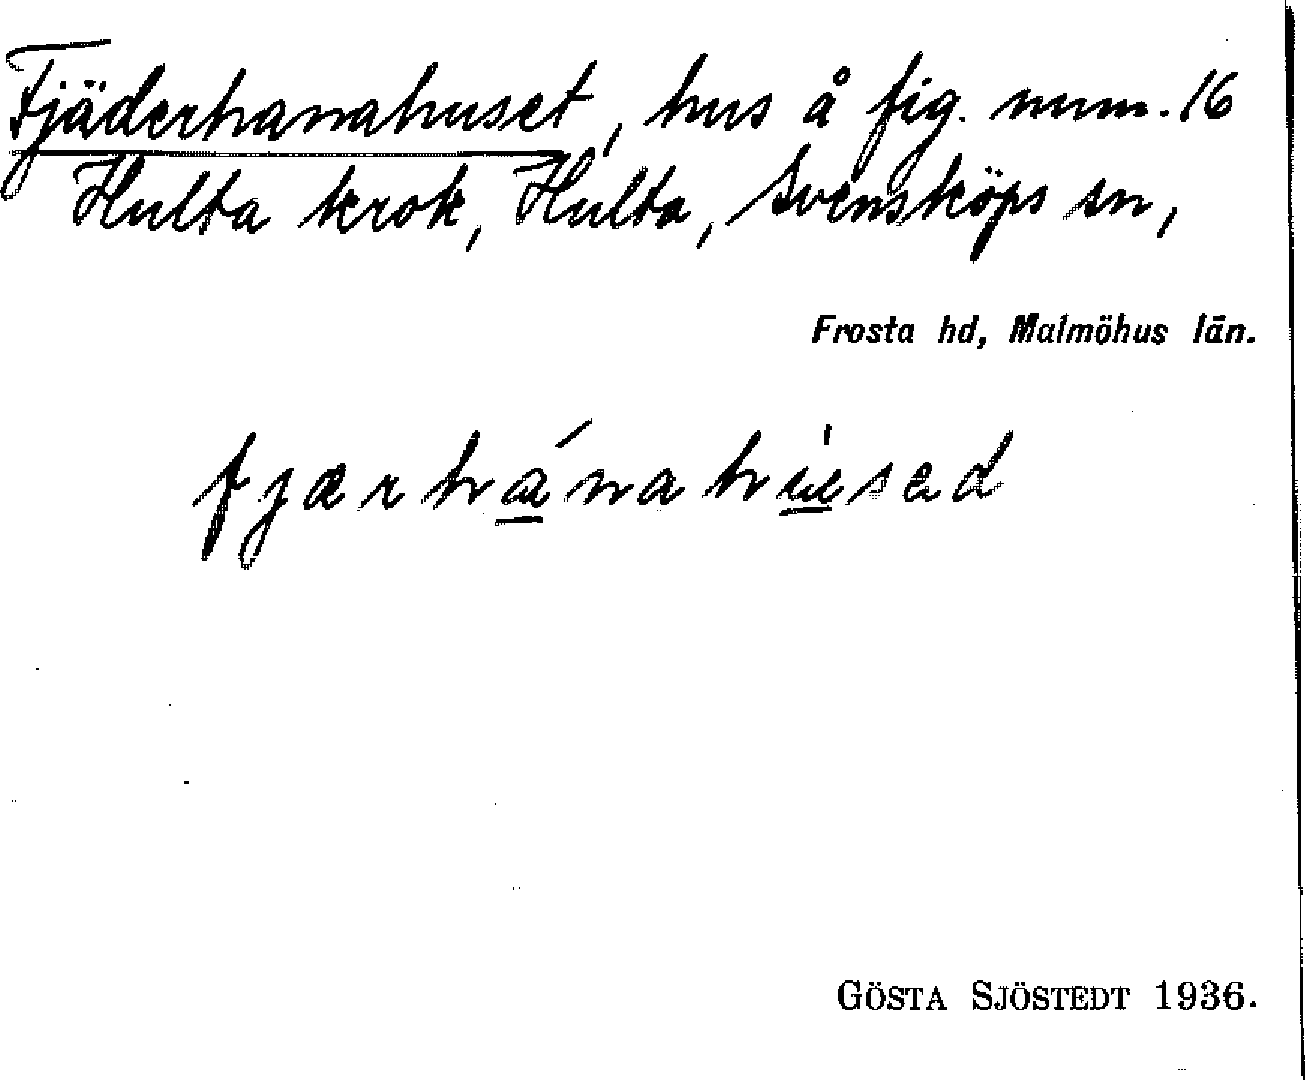 Fjäderhanahuset, hus å fig. num. 16
Hulta krok, Hulta, Svensköps sn,
Frosta hd, Malmöhus län.
GÖSTA SJÖSTEDT 1936.